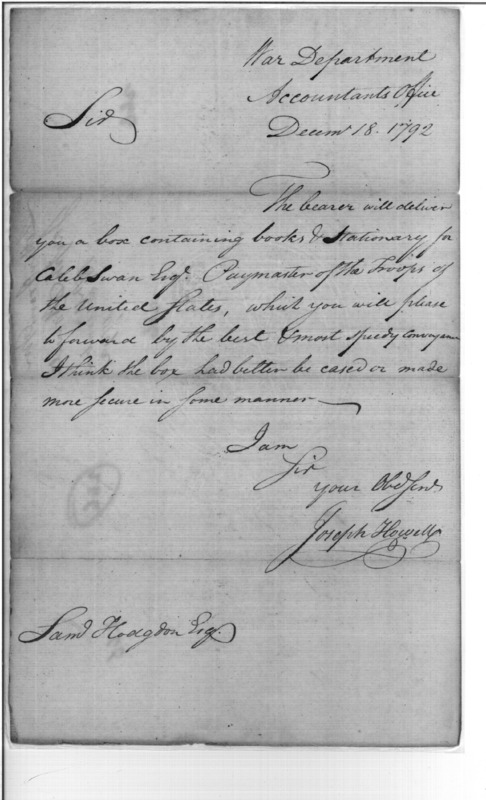 War Department
Accountants Office
Decemr 18. 1792
Sir
The bearer will deliver
you a box containing books & Stationary for
Caleb Swan Esqr. Paymaster of the Troops of
the United States, which you will please
to forward by the best & most speedy conveyance
I think the box had better be cased or made
more secure in some manner
I am
Sir
your Obd Servt
Joseph Howell
Saml Hodgdon Esqr.